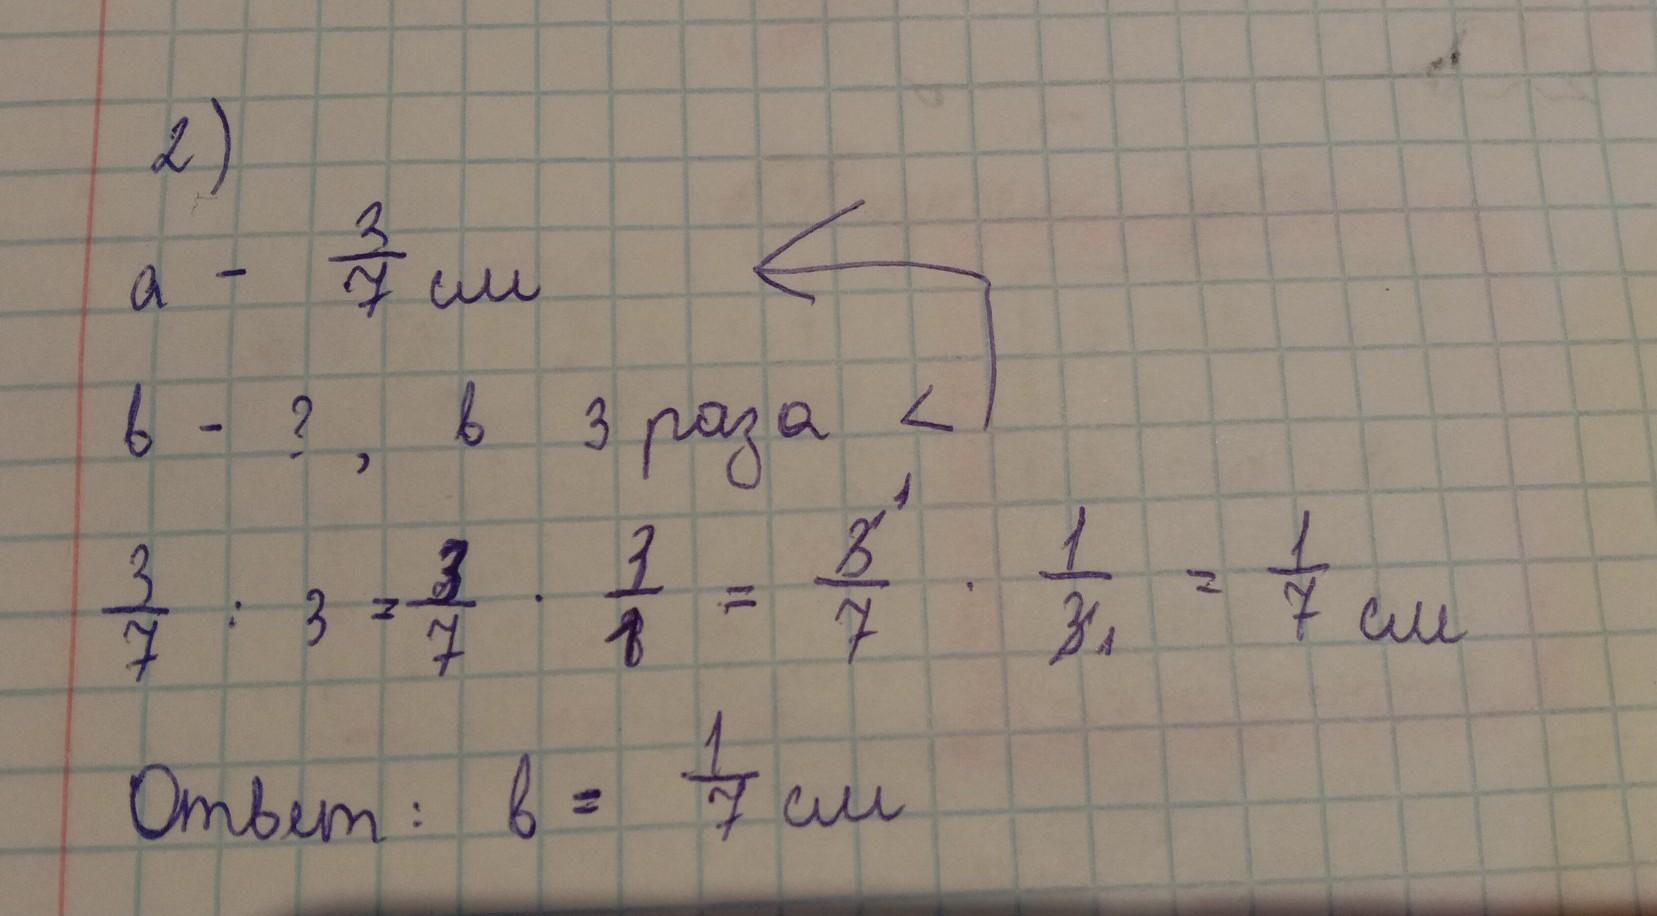 2)
a - 3/7 см
в - ?, в 3 раза <
3/7 : 3 = 3/7 · 3/1 = 3¹/7 · 1/3₁ = 1/7 см
Ответ: в = 1/7 см